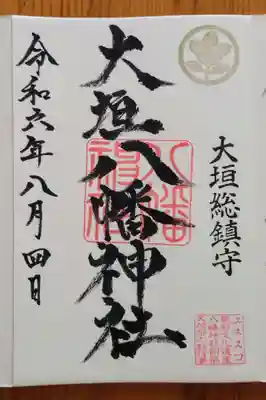 大垣総鎮守
大垣八幡神社
令和六年八月四日